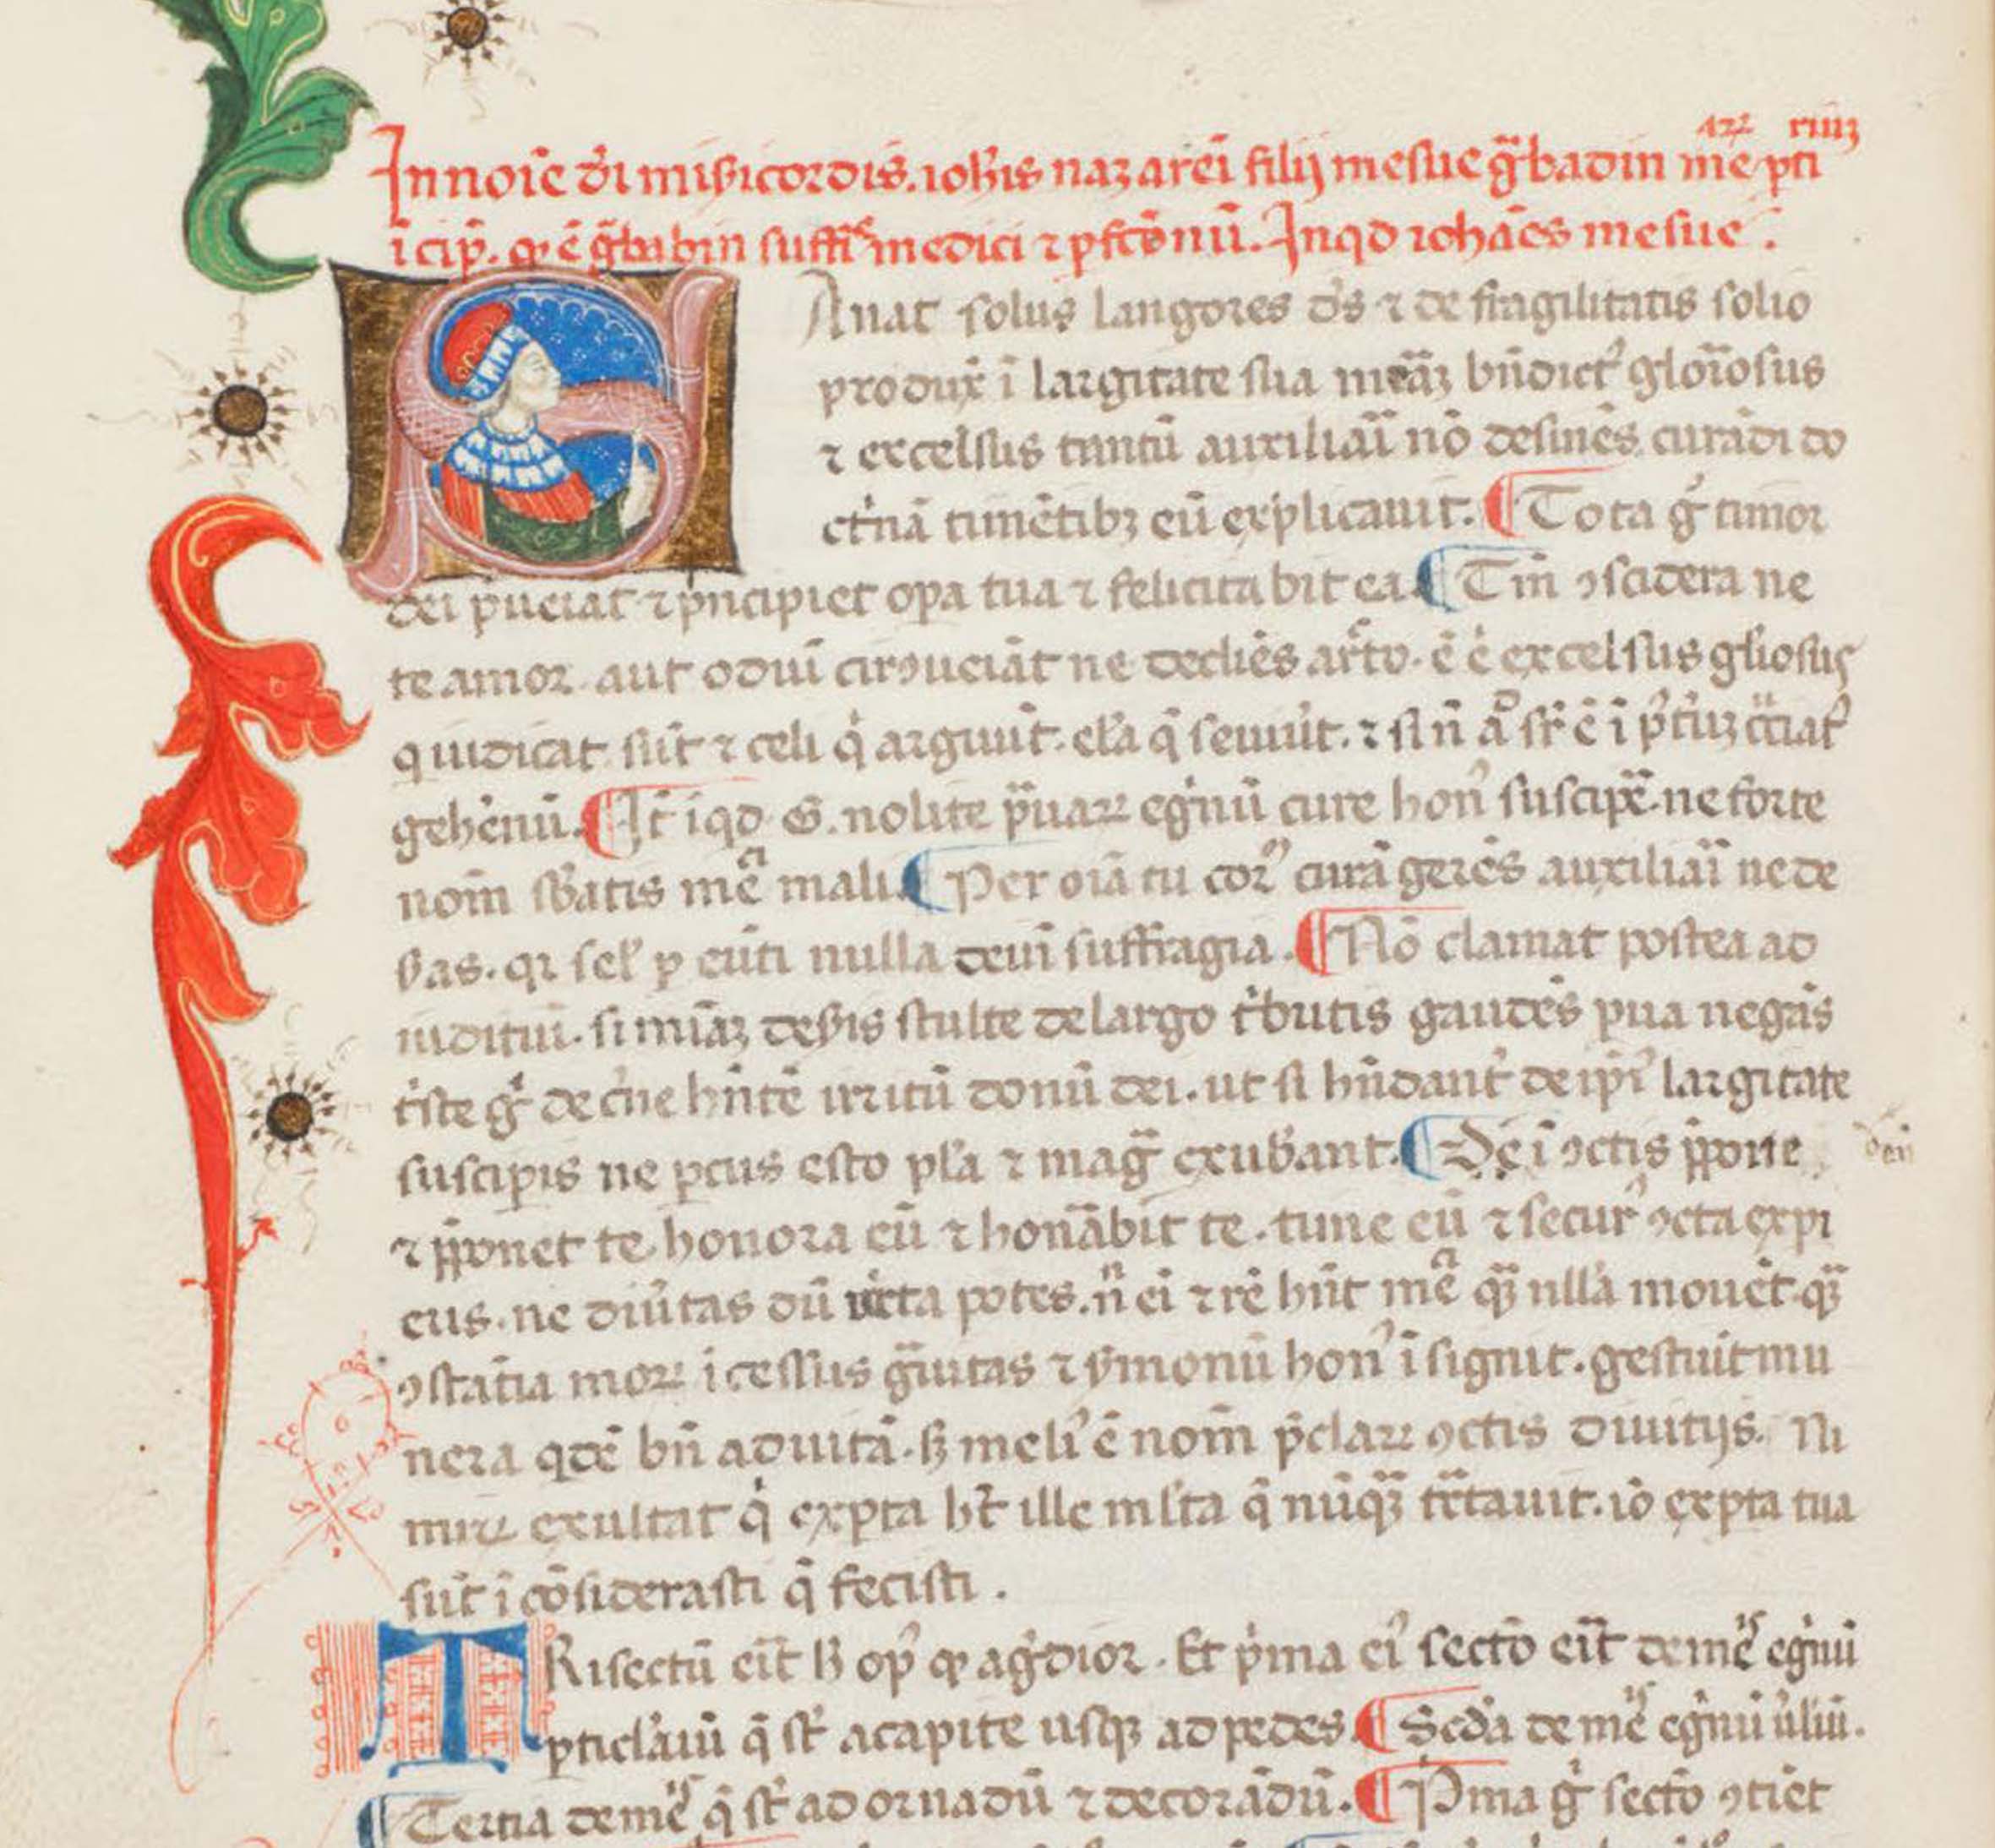 Innoīe dī miẜicordis. ioħis nazareī filij mesue gͣbadin mē pti
īcip. qͥ ē gͣbabin suffīᵉ medici ⁊ pſcōnū. Inqd iohāēs mesue.
SAnat solus langores dͥs ⁊ de fragilitatis solio
produx̄ ī largitate sua meāꝫ bn̄dictꝰ gloīosus
⁊ excelsus tantū auxiliaīī nō desinēs curādi do
ctͥnā timētibꝫ eū explicauit. ¶ Tota gͥ timor
dei pueiat ⁊ pncipiet opa tua ⁊ felicitabit ea. ¶ Tm̄ ꝯsidera ne
te amor aut odiū cirꝯueiāt ne decliēs aīto. ē ē excelsus gliosus
q uidicat sūt ⁊ celi qͥ arguūt.
gehēnū. ¶ It̄ iqd G. nolite pͥuaꝝ egͥnū cure honꝰ suscipē. ne forte
nom̄ ſƀatis mēͣ mali. ¶ Per oīa tu corꝰ curā gerēs auxiliaīī ne de
ẜas. qꝛ seł p eūti nulla deuī suffragia. ¶ Nō clamat postea ad
iuditiū. si miāꝫ deẜis stulte de largo tͥbutis gaudēs pua negās
tͥste gͥ de cͥne hn̄tē irritū donū dei. ut si hūdantͥ de ipīꝰ largitate
suscipis ne pcus esto płͣa ⁊ mag̃ exuƀant. ¶ Dē ī ꝯctis p̄pone deū
⁊ p̄ponet te honora eū ⁊ honābit te. time eū ⁊ securꝰ ꝯcta expi
eus. ne diūtas dū potes. ñ ei ⁊ rē hn̄t mēͣ qͣꝫ nllͣa mouēt. qͣꝫ
ꝯstātia morꝝ icessus gͣuitas ⁊ ẜmonū honꝰ īsignit. gestūit mu
nera qdē bn̄ ad uitā. sꝫ meliꝰ ē nom̄ pͥclaꝝ ꝯctis diuitijs. Ni
miꝝ exultat qͥ expta ht̄ ille mlͥta qͣ nūqͣꝫ tc̄tauit. iō expta tua
sūt ī cōsiderasti qͣ fecisti.
TRisectū eīt ħ opꝰ qͥ agͥdior. Et pͥma eiꝰ sectō eīt de mēͥˢ egͥnū
pticlͣaiū qͣ st̄ a capite usqꝫ ad pedes. ¶ Scdͣa de mēͥˢ egͥnū uͥliū.
¶ Tertia de mēͥˢ qͣ st̄ ad ornadū ⁊ decorādū. ¶ Pͥma gͥ sectō ꝯtiēt